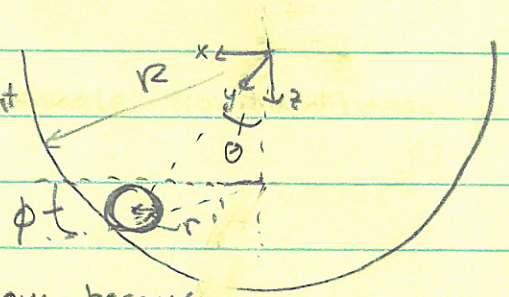 x
R
y
z
θ
φ
r
because